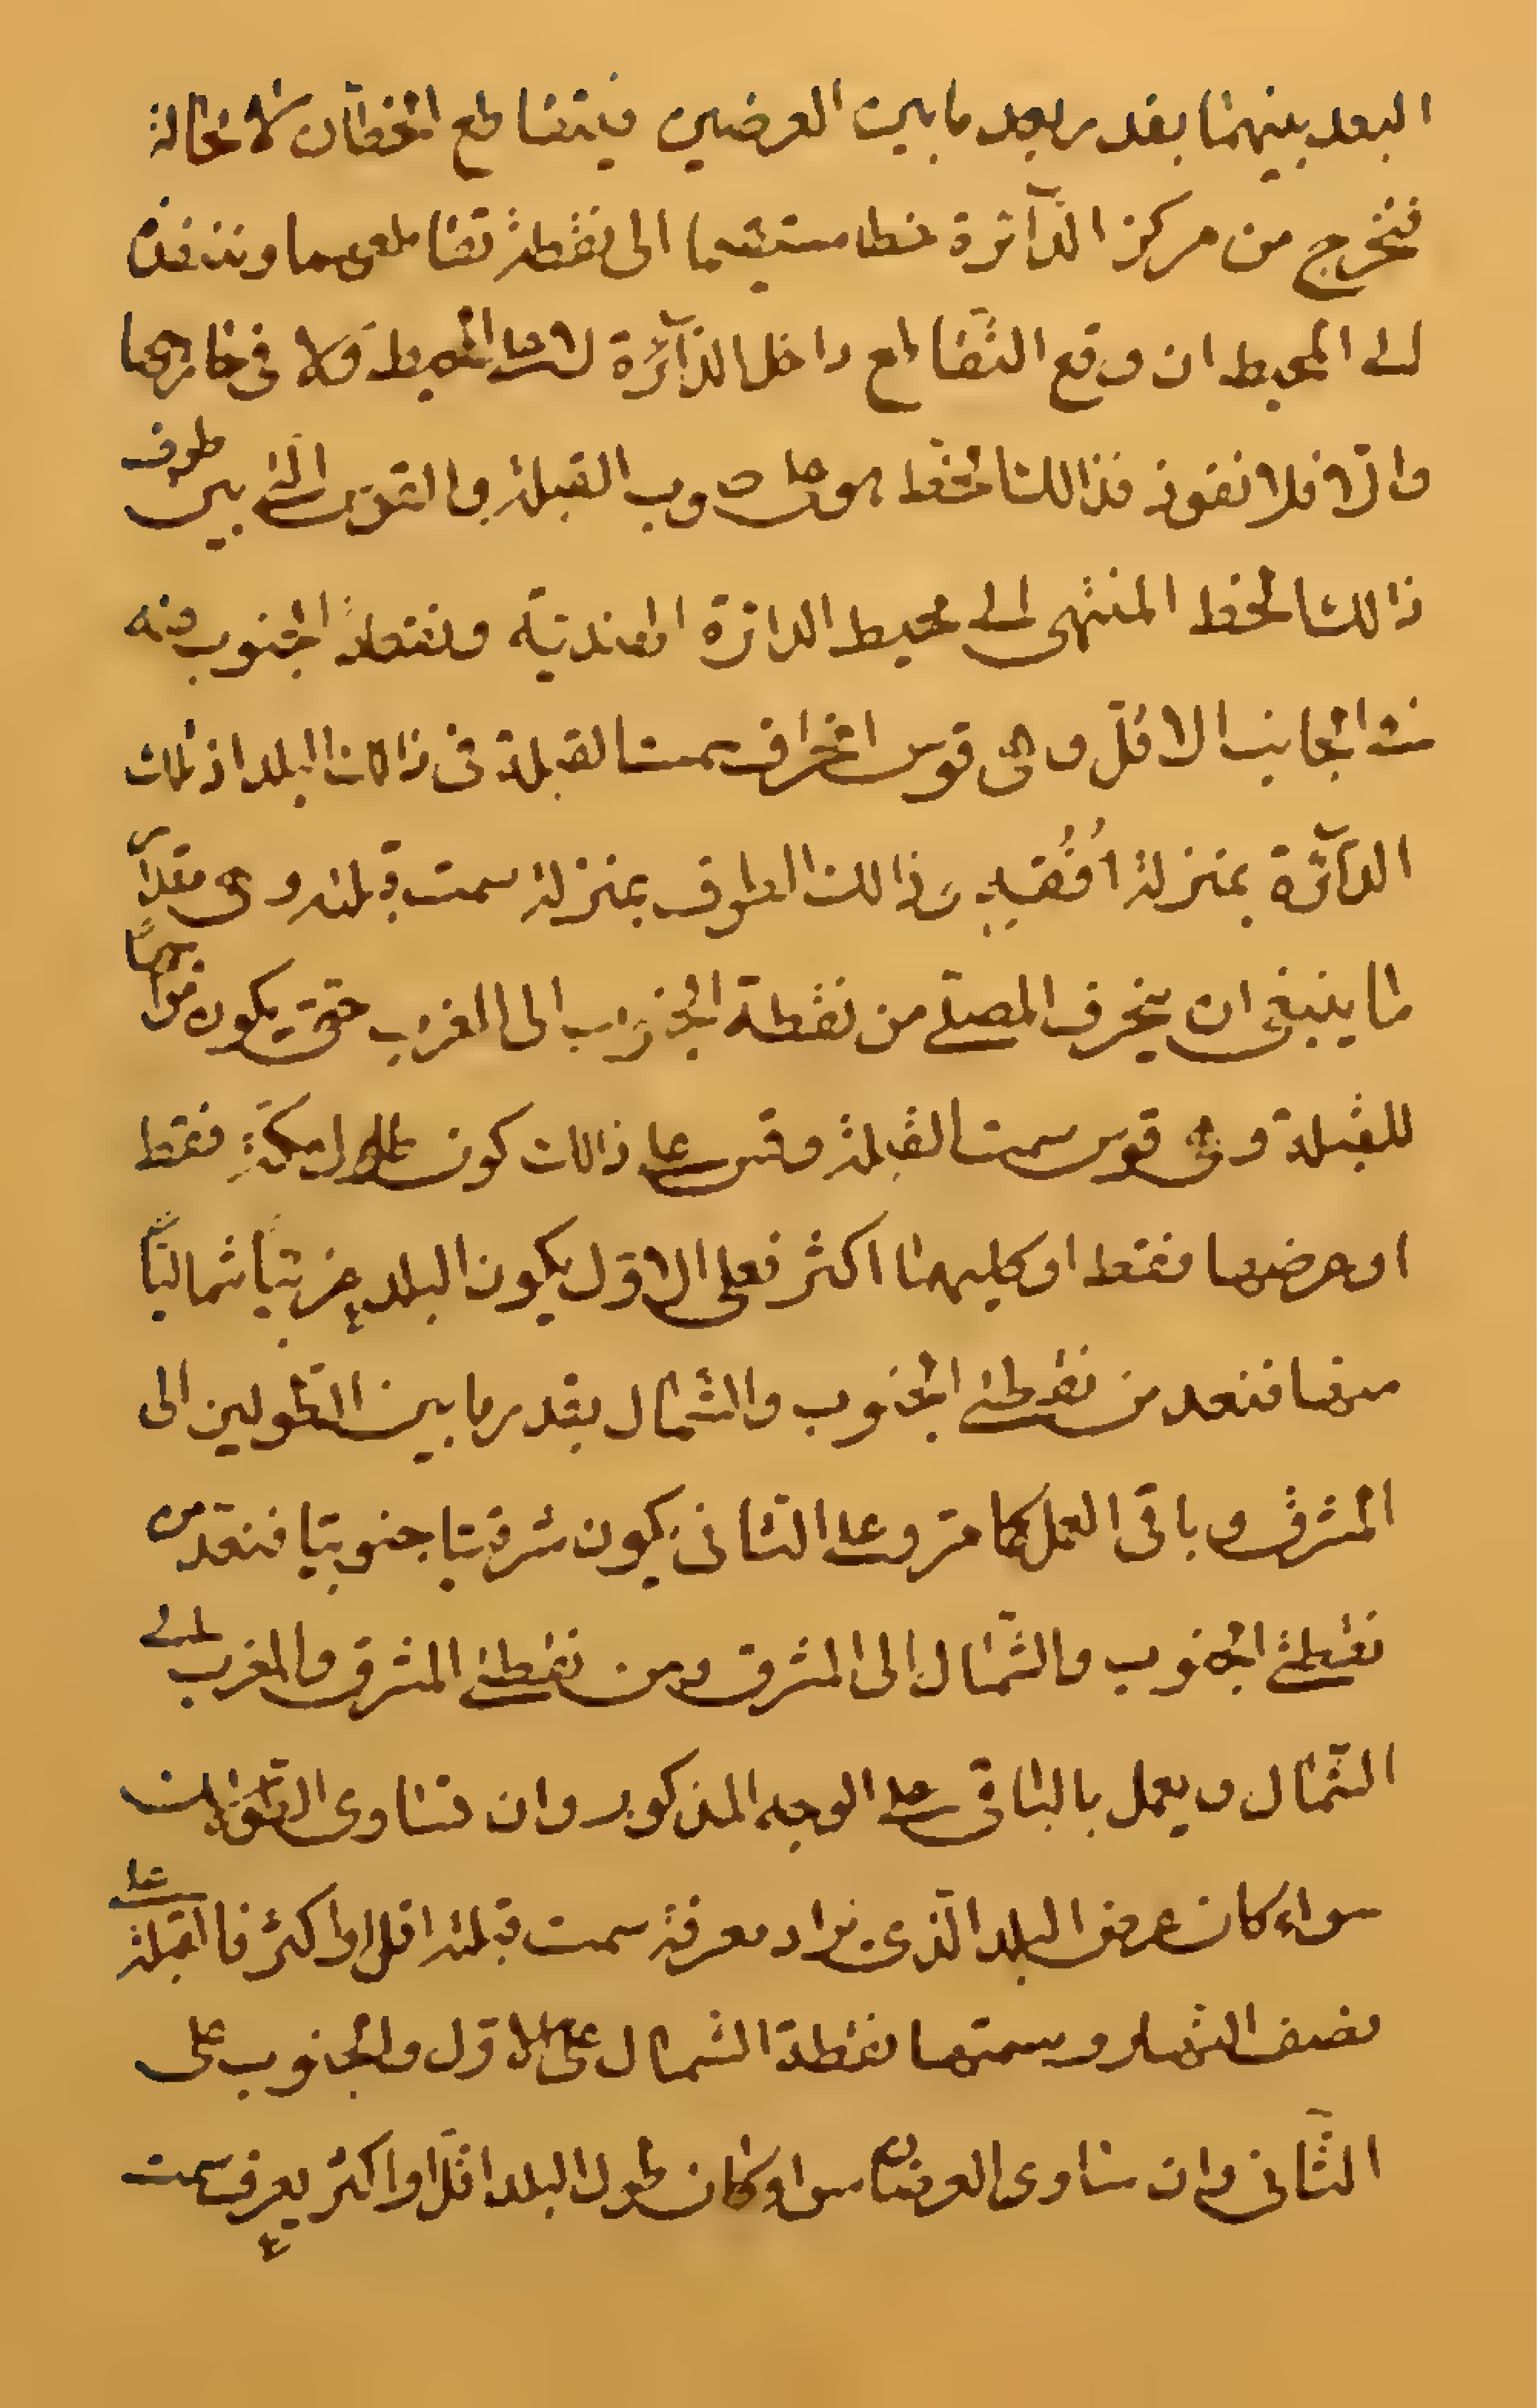 البعد بينهما بقدر بعد ما بين العرضين فيتقاطع الخطان لا محالة
فنخرج من مركز الدآئرة خطا مستقيما الى نقطة تقاطعهما وننفذه
الى المحيط ان وقع التقاطع داخل الدآئرة لا على المحيط ولا فى خارجها
والّا فلا نفوذ فذالك الخط هو على صوب القبلة والقوس التى بين طرف
ذالك الخط المنتهى الى محيط الدائرة الهندية ونقطة الجنوب منه
من الجانب الاقلّ وهى قوس انحراف سمت القبلة فى ذالك البلد اذ تلك
الدآئرة بمنزلة اُفُقه وذالك الطرف بمنزلة سمت قبلته وهى مقدار
ما ينبغى ان ينحرف المصلّى من نقطة الجنوب الى المغرب حتى يكون مواجها
للقبلة وهى قوس سمت القبلة وقس على ذالك كون طول مكّة فقط
او عرضها فقط او كليهما اكثر فعلى الاوّل يكون البلد غربيّا شماليّا
منها فنعد من نقطتى الجنوب والشمال بقدر ما بين الطولين الى
المشرق وباقى العمل كما مرّ وعلى الثانى يكون شرقيّا جنوبيّا فنعدّ من
نقطتى الجنوب والشّمال الى المشرق ومن نقطتى المشرق والمغرب الى
الشّمال ويعمل بالباقى على الوجه المذكور وان تساوى الطّولان
سواء كان عرض البلد الّذى نراد معرفة سمت قبلته اقل او اكثر فالقبلة على
نصف النهار وسمتها نقطة الشمال على الاوّل والجنوب على
الثّانى وان تساوى العرضان سواء كان طول البلد اقلّ او اكثر يعرف سمت